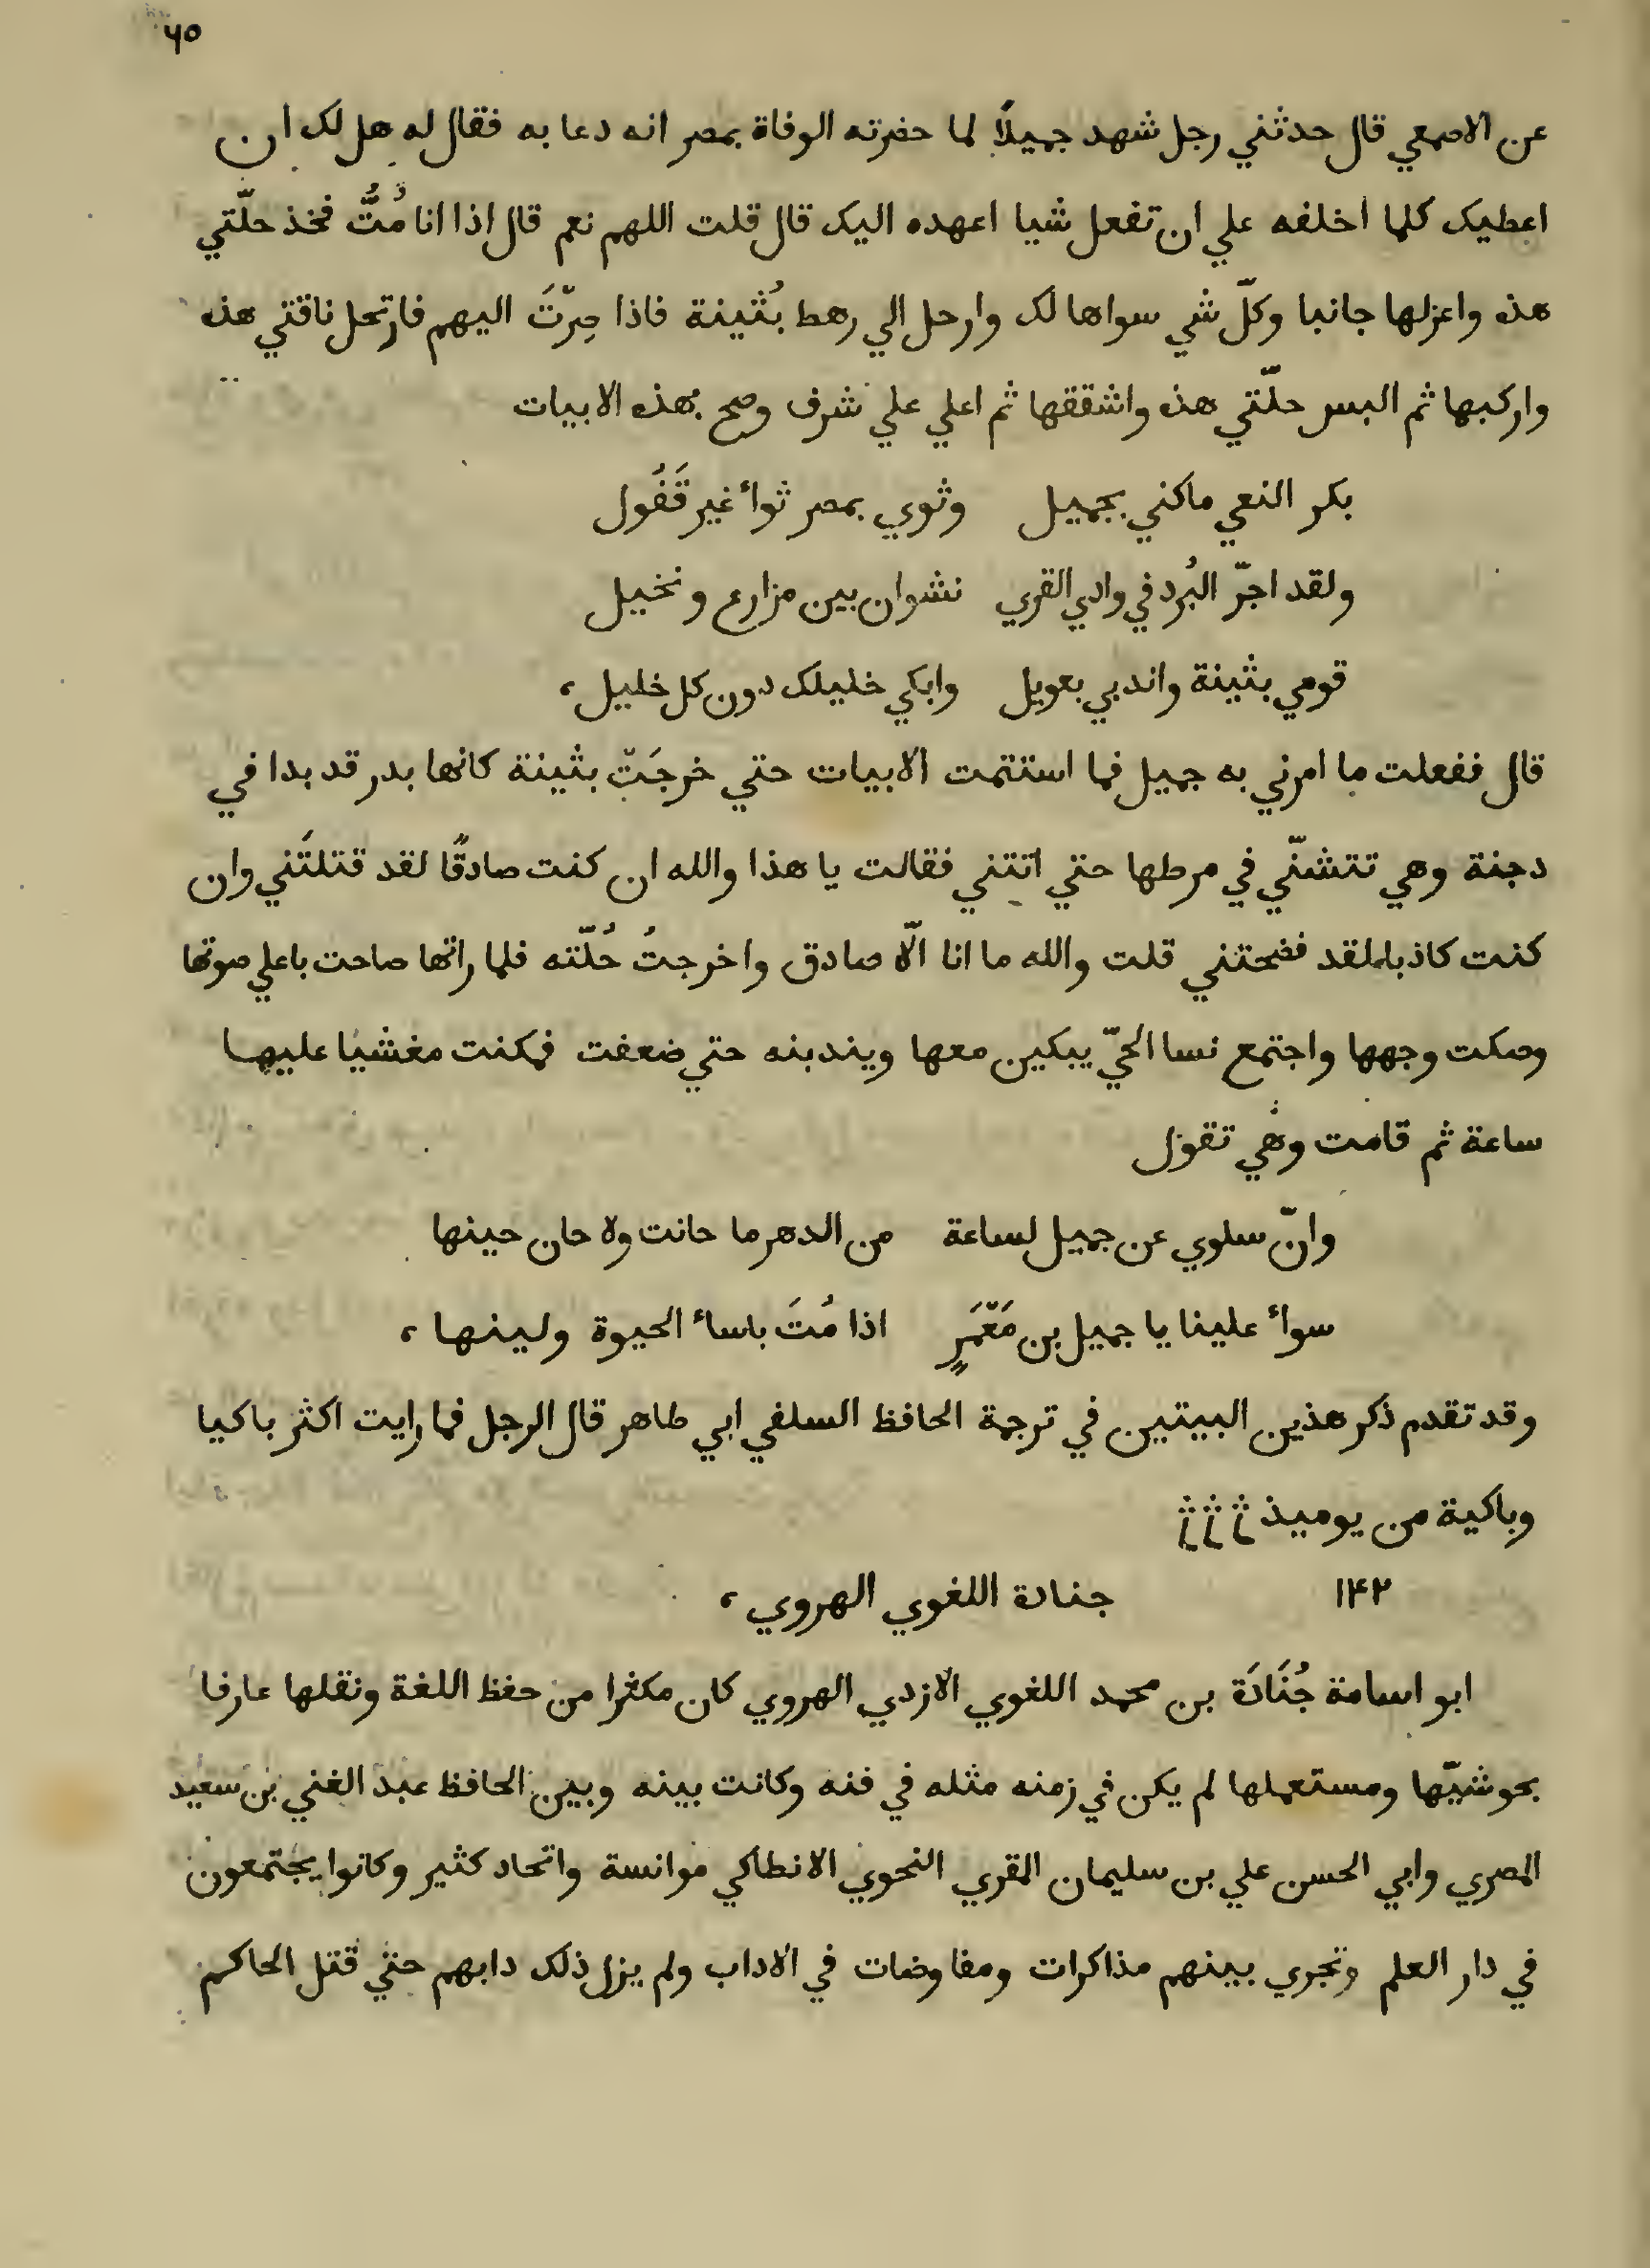 ٦٥
عن الاصمعي قال حدثني رجل شهد جميلاً لما حضرته الوفاة بمصر انه دعا به فقال له هل لك ان
اعطيك كلما اخلفه علي ان تفعل شيا اعهده اليك قال قلت اللهم نعم قال اذا انا مُتُّ فخذ حلّتي
هذه واعزلها جانبا وكلّ شي سواها لك وارحل الي رهط بُثينة فاذا صِرّتَ اليهم فارتحل ناقتي هذه
واركبها ثم البس حلّتي هذه واشققها ثم اعلي علي شرف وصح بهذه الابيات
بكر النعي ماكني بجميل وثوي بمصر ثواءٔ غير قَفُول
ولقد اجرّ البُرد في وادي القري نشوان بين مزارع ونخيل
قومي بثينة واندبي بعويل وابكي خليلك دون كل خليل،
قال ففعلت ما امرني به جميل فما استتمت الابيات حتي خرجَتْ بثينة كانها بدر قد بدا في
دجنة وهي تتشنّي في مرطها حتي اتتني فقالت يا هذا والله ان كنت صادقًا لقد قتلتَني وان
كنت كاذبا لقد فضحتني قلت والله ما انا الّا صادق واخرجتُ حُلّته فلما راتها صاحت باعلي صوتها
وصكت وجهها واجتمع نسا الحيّ يبكين معها ويندبنه حتي ضعفت فمكنت مغشيا عليها
ساعة ثم قامت وهي تقول
وانّ سلوي عن جميل لساعة من الدهر ما حانت ولا حان حينها
سواءٔ علينا يا جميل بن مَعْمَرٍ اذا مُتَ باساءٔ الحيوة ولينها،
وقد تقدم ذكر هذين البيتين في ترجمة الحافظ السلفي ابي طاهر قال الرجل فما رايت اكثر باكيا
وباكية من يوميذ
١٤٢ جنادة اللغوي الهروي،
ابو اسامة جُنَادَة بن محمد اللغوي الازدي الهروي كان مكثرا من حفظ اللغة ونقلها عارفا
بحوشيّها ومستعملها لم يكن في زمنه مثله في فنه وكانت بينه وبين الحافظ عبد الغني بن سعيد
المصري وابي الحسن علي بن سليمان المقري النحوي الانطاكي موانسة واتحاد كثير وكانوا يجتمعون
في دار العلم وتجري بينهم مذاكرات ومفاوضات في الاداب ولم يزل ذلك دابهم حتي قتل الحاكم